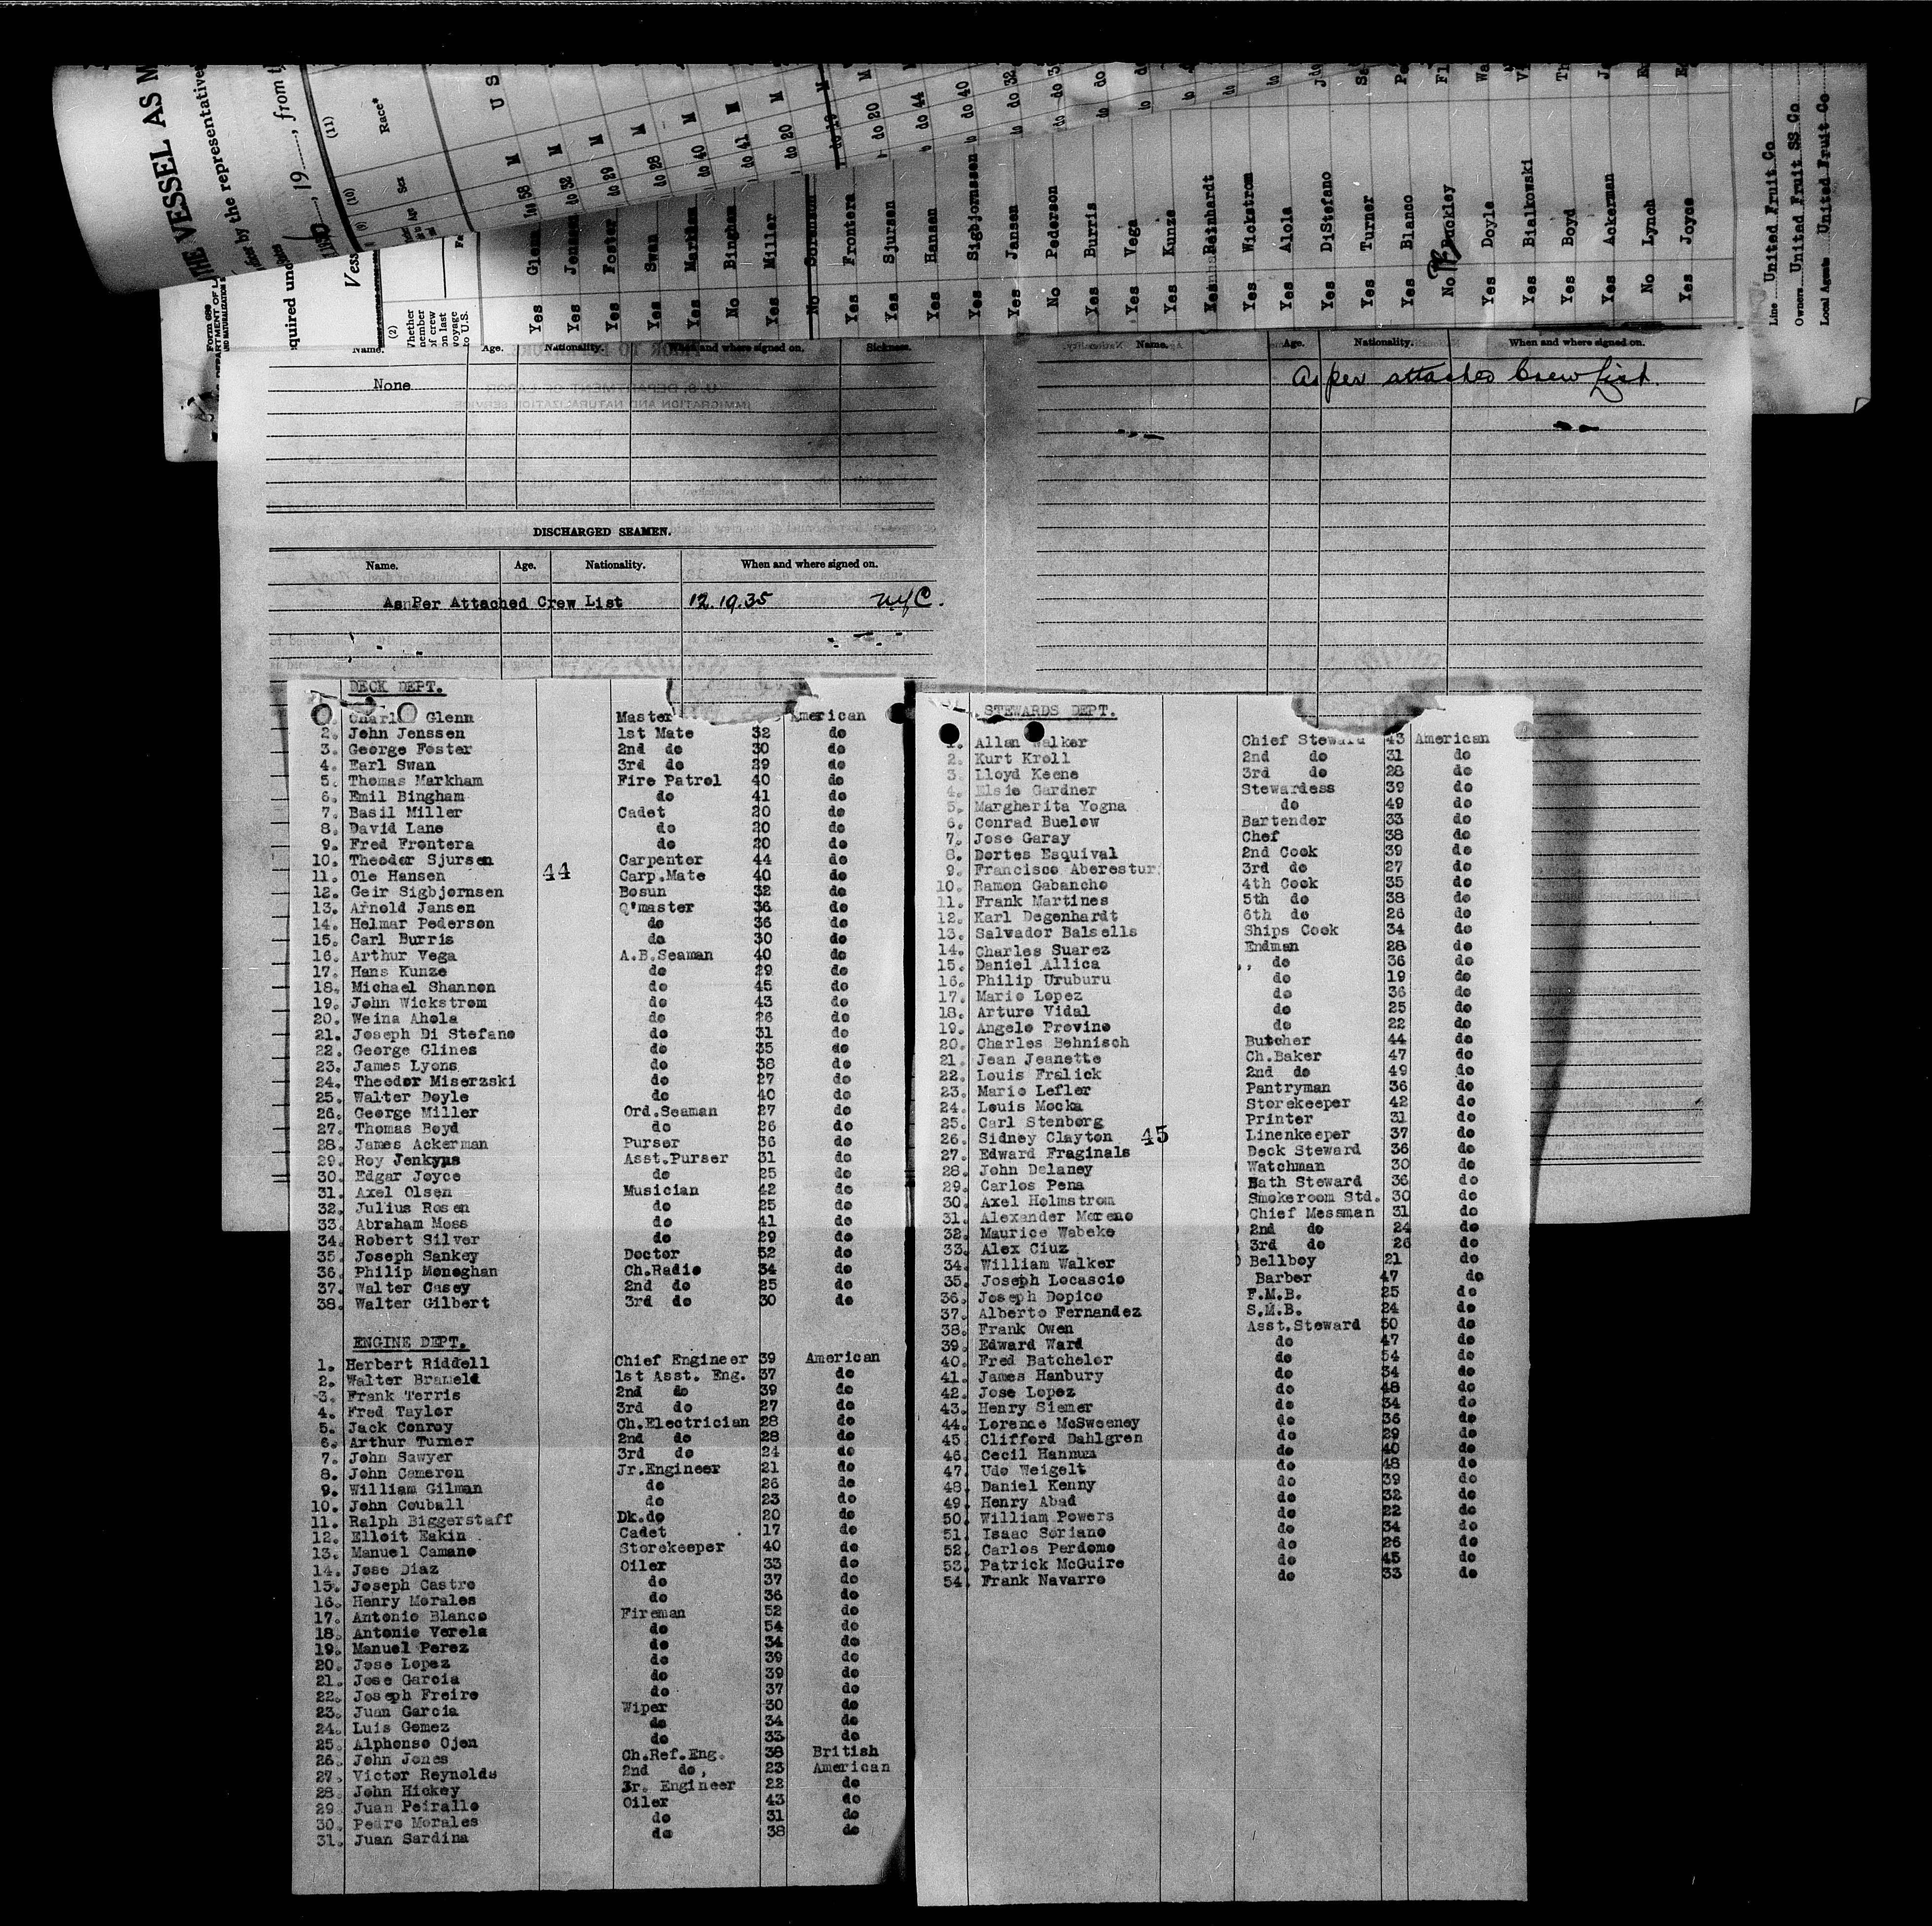 THE VESSEL AS M
des by the representative
19......, from t
Form 686
equired und
Vess
(11)
Race*
(10)
Sex
(9)
(2)
Whether member of crew on last voyage to U.S.
U S
Yes Glenn 58 M
Yes Jenssen do 32 M
Yes Foster do 29 M
Yes Swan do 28 M
Yes Markham do 40 M
No Bingham do 41 M
Yes Miller do 20 M
No Sorenson do 19 M
Yes Frontera do 20 M
Yes Sjursen do 44
Yes Hansen do 40
Yes Sigbjornssen do 32
Yes Jansen do
No Pederson do
Yes Burris
Yes Vega
Yes Kunze
Reinhardt
Yes Wickstrom
Yes Alola
Yes DiStefano
Yes Turner
Yes Blanco
No Buckley
Yes Doyle
Yes Bialkowski
Yes Boyd
Yes Ackerman
No Lynch
Yes Joyce
Line United Fruit Co
Owners United Fruit SS Co
Local Agents United Fruit Co
Name. Age. Nationality. When and where signed on. Sickness.
None
Name. Age. Nationality. When and where signed on.
As per attached Crew List.
DISCHARGED SEAMEN.
Name. Age. Nationality. When and where signed on.
As Per Attached Crew List 12.19.35 NYC.
DECK DEPT.
Glenn Master American
2. John Jenssen 1st Mate 32 do
3. George Foster 2nd do 30 do
4. Earl Swan 3rd do 29 do
5. Thomas Markham Fire Patrol 40 do
6. Emil Bingham do 41 do
7. Basil Miller Cadet 20 do
8. David Lane do 20 do
9. Fred Frontera do 20 do
10. Theodor Sjursen Carpenter 44 do
11. Ole Hansen 44 Carp.Mate 40 do
12. Geir Sigbjornsen Bosun 32 do
13. Arnold Jansen Q'master 36 do
14. Helmar Pederson do 36 do
15. Carl Burris do 30 do
16. Arthur Vega A.B.Seaman 40 do
17. Hans Kunze do 29 do
18. Michael Shannon do 45 do
19. John Wickstrom do 43 do
20. Weina Ahola do 26 do
21. Joseph Di Stefano do 31 do
22. George Glines do 35 do
23. James Lyons do 38 do
24. Theodor Miserzski do 27 do
25. Walter Doyle do 40 do
26. George Miller Ord.Seaman 27 do
27. Thomas Boyd do 26 do
28. James Ackerman Purser 36 do
29. Roy Jenkyns Asst.Purser 31 do
30. Edgar Joyce do 25 do
31. Axel Olsen Musician 42 do
32. Julius Rosen do 25 do
33. Abraham Moss do 41 do
34. Robert Silver do 29 do
35. Joseph Sankey Doctor 52 do
36. Philip Moneghan Ch.Radio 34 do
37. Walter Casey 2nd do 25 do
38. Walter Gilbert 3rd do 30 do
ENGINE DEPT.
1. Herbert Riddell Chief Engineer 39 American
2. Walter Brameld 1st Asst. Eng. 37 do
3. Frank Terris 2nd do 39 do
4. Fred Taylor 3rd do 27 do
5. Jack Conroy Ch.Electrician 28 do
6. Arthur Turner 2nd do 28 do
7. John Sawyer 3rd do 24 do
8. John Cameron Jr.Engineer 21 do
9. William Gilman do 26 do
10. John Couball do 23 do
11. Ralph Biggerstaff Dk.do 20 do
12. Elloit Eakin Cadet 17 do
13. Manuel Camano Storekeeper 40 do
14. Jose Diaz Oiler 33 do
15. Joseph Castro do 37 do
16. Henry Morales do 36 do
17. Antonio Blanco Fireman 52 do
18. Antonio Verela do 54 do
19. Manuel Perez do 34 do
20. Jose Lopez do 39 do
21. Jose Garcia do 39 do
22. Joseph Freire do 37 do
23. Juan Garcia Wiper 30 do
24. Luis Gomez do 34 do
25. Alphonso Ojen do 33 do
26. John Jones Ch.Ref.Eng. 38 British
27. Victor Reynolds 2nd do, 23 American
28. John Hickey 3r. Engineer 22 do
29. Juan Peirallo Oiler 43 do
30. Pedro Morales do 31 do
31. Juan Sardina do 38 do
STEWARDS DEPT.
1. Allan Walker Chief Steward 43 American
2. Kurt Kroll 2nd do 31 do
3. Lloyd Keene 3rd do 28 do
4. Elsie Gardner Stewardess 39 do
5. Margherita Yogna do 49 do
6. Conrad Buelow Bartender 33 do
7. Jose Garay Chef 38 do
8. Dortes Esquival 2nd Cook 39 do
9. Francisco Aberestur 3rd do 27 do
10. Ramon Gabancho 4th Cook 35 do
11. Frank Martines 5th do 38 do
12. Karl Degenhardt 6th do 26 do
13. Salvador Balsells Ships Cook 34 do
14. Charles Suarez Endman 28 do
15. Daniel Allica do 36 do
16. Philip Uruburu do 19 do
17. Mario Lopez do 36 do
18. Arturo Vidal do 25 do
19. Angelo Provino do 22 do
20. Charles Behnisch Butcher 44 do
21. Jean Jeanette Ch.Baker 47 do
22. Louis Fralick 2nd do 49 do
23. Mario Lefler Pantryman 36 do
24. Louis Mocka Storekeeper 42 do
25. Carl Stenborg Printer 31 do
26. Sidney Clayton 45 Linenkeeper 37 do
27. Edward Fraginals Deck Steward 36 do
28. John Delaney Watchman 30 do
29. Carlos Pena Bath Steward 36 do
30. Axel Holmstrom Smokeroom Std. 30 do
31. Alexander Moreno Chief Messman 31 do
32. Maurice Wabeke 2nd do 24 do
33. Alex Ciuz 3rd do 26 do
34. William Walker Bellboy 21 do
35. Joseph Locascio Barber 47 do
36. Joseph Dopico F.M.B. 25 do
37. Alberto Fernandez S.M.B. 24 do
38. Frank Owen Asst.Steward 50 do
39. Edward Ward do 47 do
40. Fred Batchelor do 54 do
41. James Hanbury do 34 do
42. Jose Lopez do 48 do
43. Henry Siemer do 34 do
44. Lorence McSweeney do 36 do
45 Clifford Dahlgren do 29 do
46. Cecil Hannum do 40 do
47. Udo Weigelt do 48 do
48. Daniel Kenny do 39 do
49. Henry Abad do 32 do
50. William Powers do 22 do
51. Isaac Soriano do 34 do
52. Carlos Perdomo do 26 do
53. Patrick McGuire do 45 do
54. Frank Navarro do 33 do